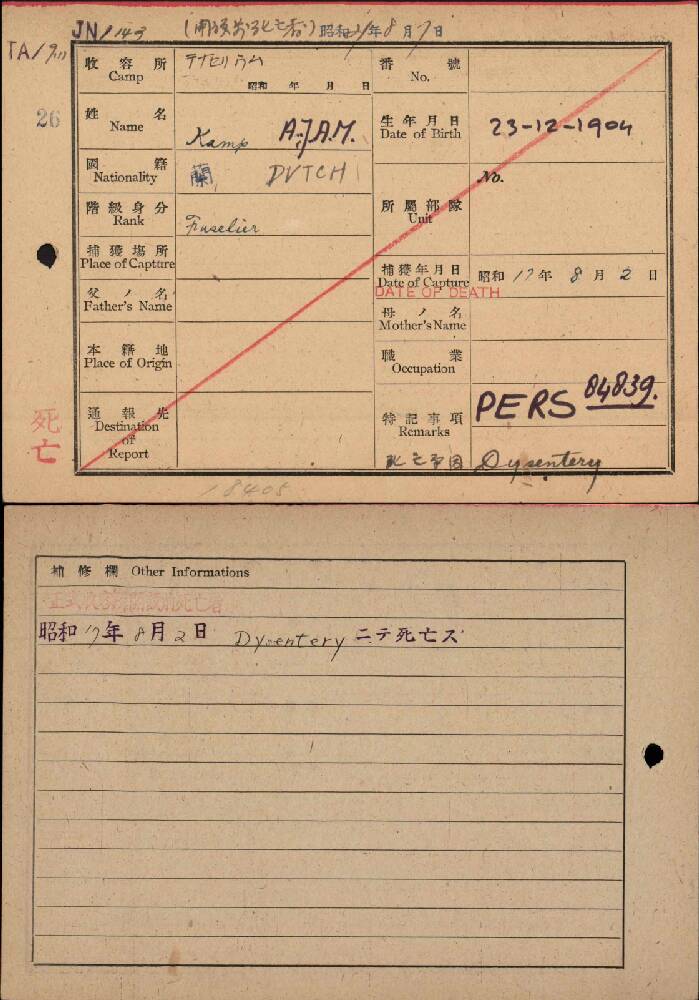 JN/143 昭和21年8月7日
TA/
收容所 Camp
昭和 年 月 日
番號 No.
26
姓名 Name Kamp A.J.A.M.
生年月日 Date of Birth 23-12-1904
國籍 Nationality 蘭 DVTCH
No.
階級身分 Rank Fuselier
所屬部隊 Unit
捕獲場所 Place of Capture
捕獲年月日 Date of Capture 昭和17年8月2日
DATE OF DEATH
父ノ名 Father's Name
母ノ名 Mother's Name
本籍地 Place of Origin
職業 Occupation
死亡
通報先 Destination of Report
特記事項 Remarks PERS 84839.
Dysentery
18405
補修欄 Other Informations
昭和17年8月2日 Dysentery ニテ死亡ズ